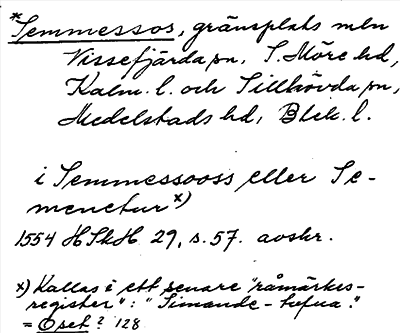 *Semmessos, gränsplats mln
Vissefjärda sn, S. Möre hd,
Kalm. l. och Sillhövda sn,
Medelstads hd, Blek. l.
i Semmessooss eller Se-
menetur x)
1554 HSkH 29, s. 57. avskr.
x) Kallas i ett senare "råmärkes-
register": "Simande-tufua."
= Oset? 128